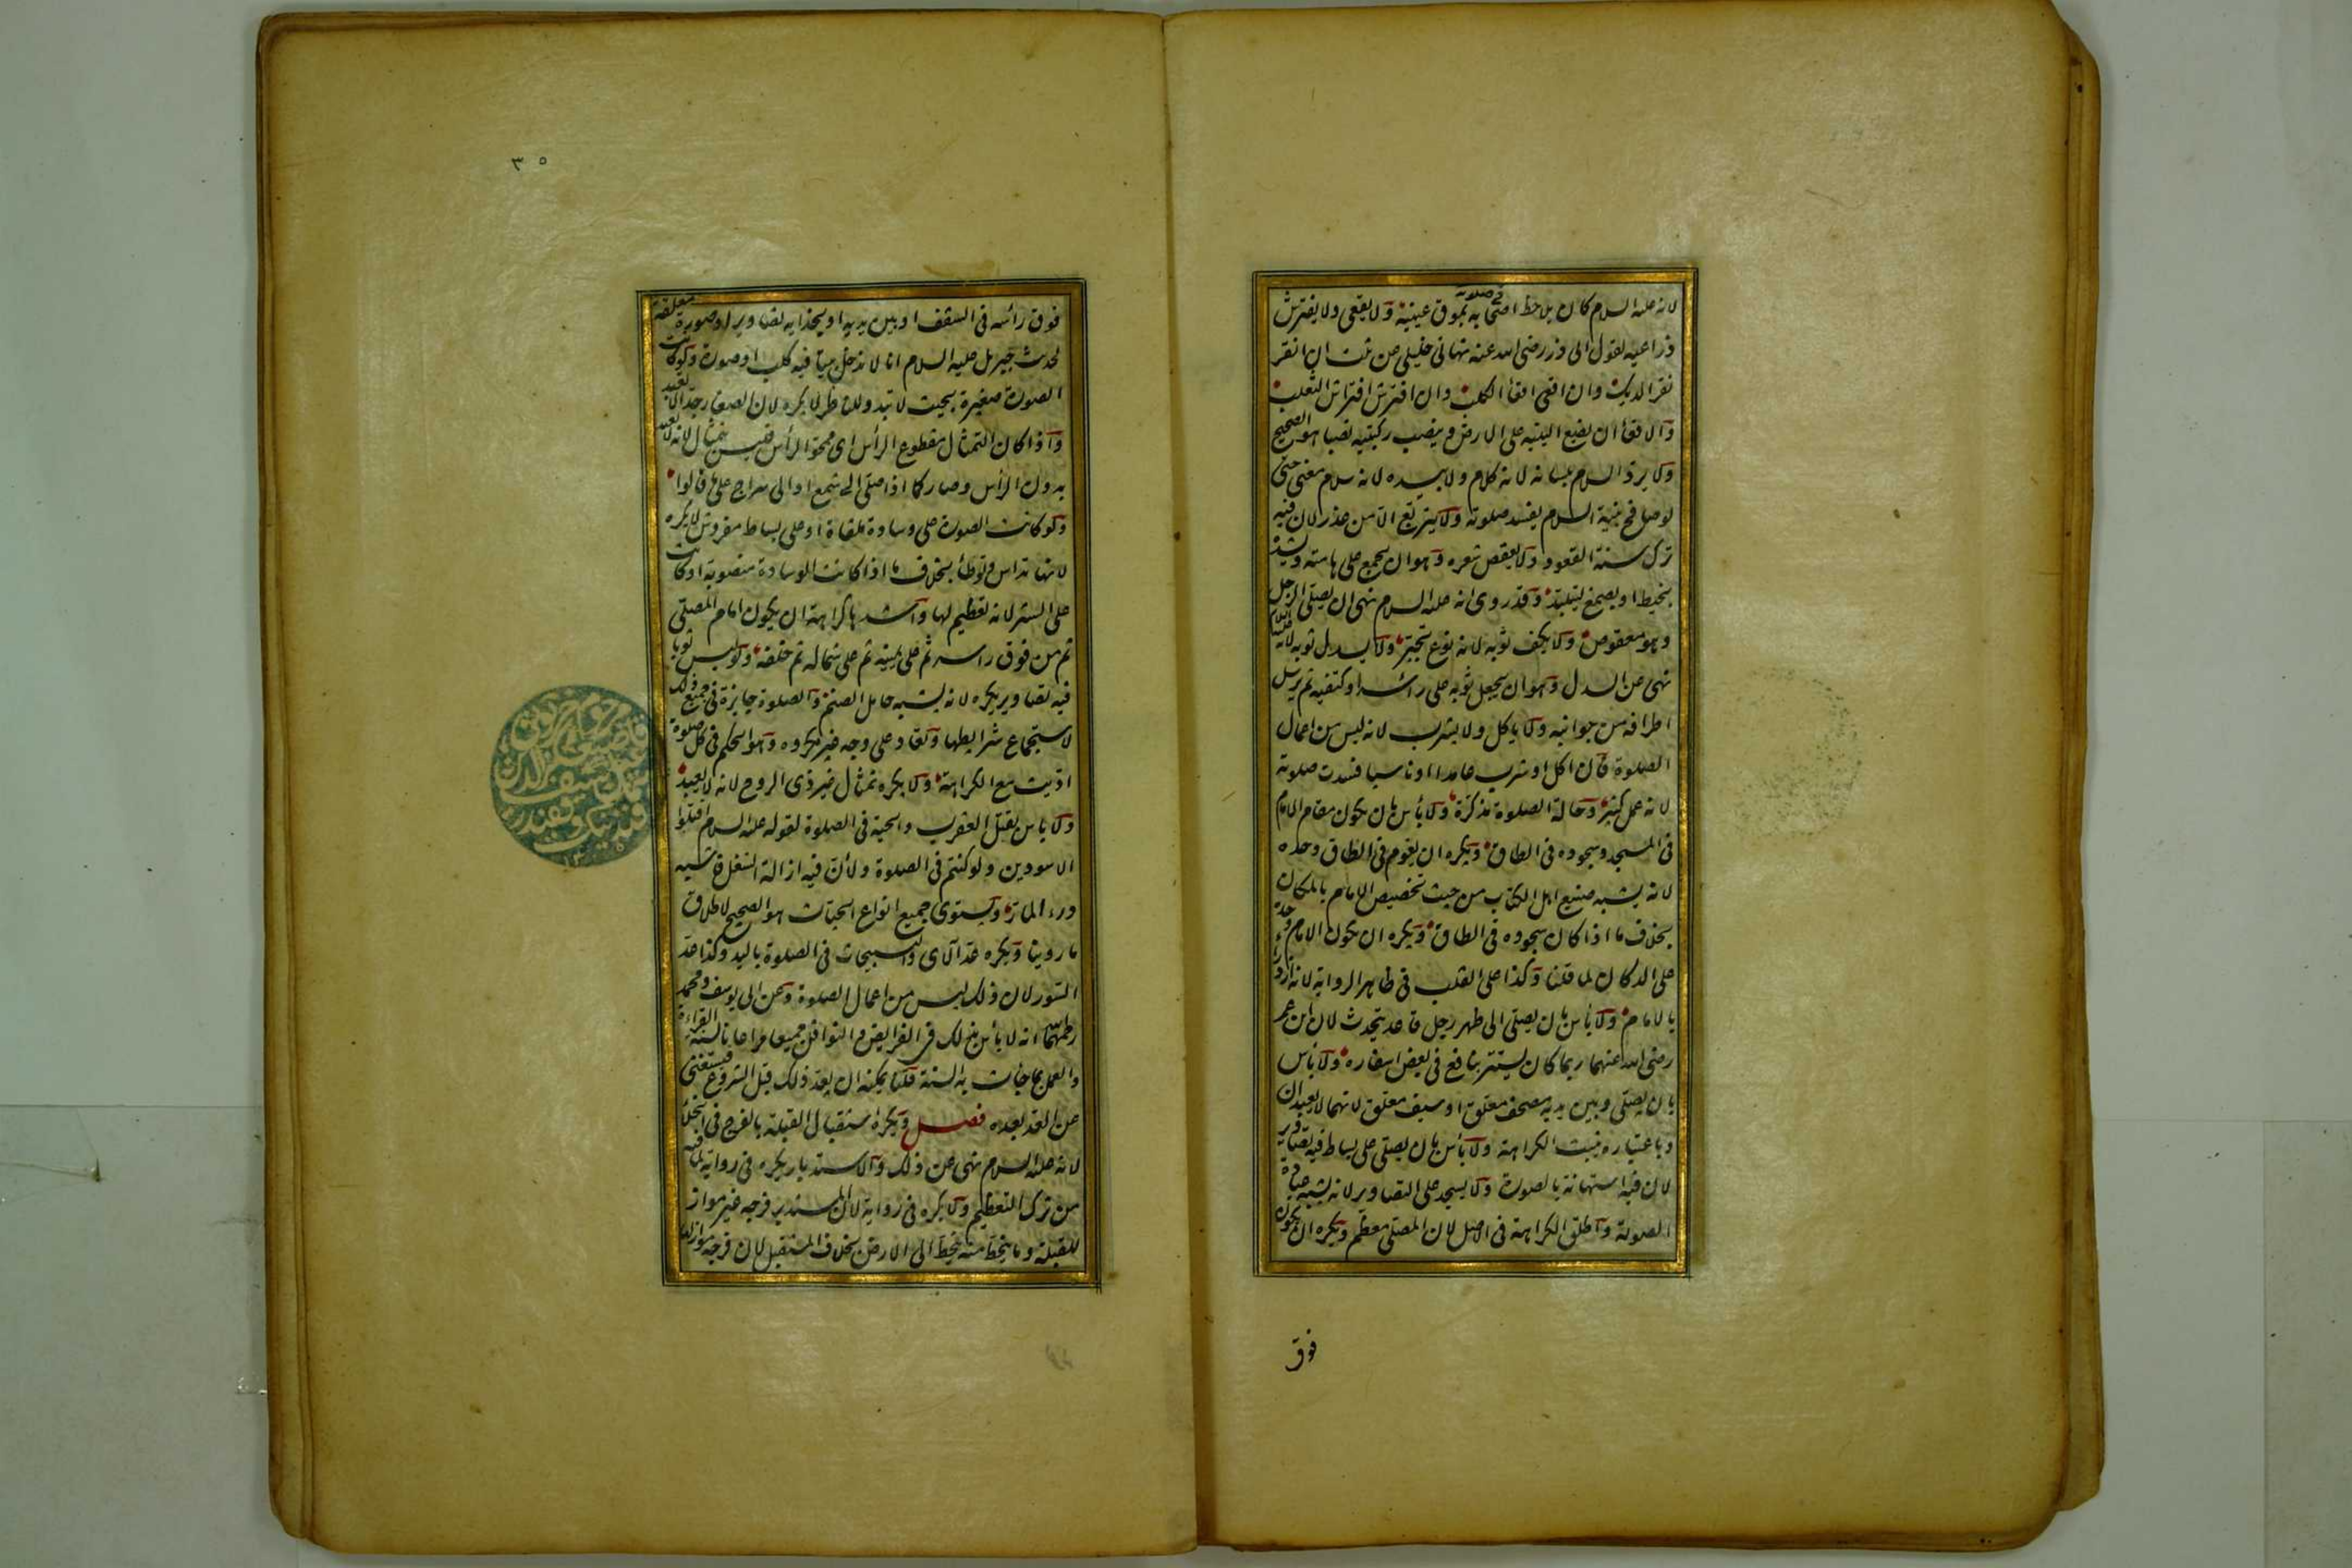 لانه عليه السلام كان يلاحظ اصحابه فى صلوته بموق عينيه ولا يقعى ولا يفترش
ذراعيه لقول ابى ذر رضى الله عنه نهانى خليلى عن ثلث ان انقر
نقر الديك وان اقعى اقعاء الكلب وان افترش افتراش الثعلب
والاقعاء ان يضع اليتيه على الارض وينصب ركبتيه نصبا هو الصحيح
ولا يرد السلام بلسانه لانه كلام ولا بيده لانه سلام معنى حتى
لو صافح بنية السلام يفسد صلوته ولا يتربع الا من عذر لان فيه
ترك سنة القعود ولا يعقص شعره وهو ان يجمع على هامته ويشد
بخيط او بصمغ ليتلبد وقد روى انه عليه السلام نهى ان يصلى الرجل
وهو معقوص ولا يكف ثوبه لانه نوع تجبر ولا يسدل ثوبه لانه عليه السلام
نهى عن السدل وهو ان يجعل ثوبه على رأسه او كتفيه ثم يرسل
اطرافه من جوانبه ولا ياكل ولا يشرب لانه ليس من اعمال
الصلوة فان اكل او شرب عامدا او ناسيا فسدت صلوته
لانه عمل كثير وحالة الصلوة مذكرة ولا بأس بان يكون مقام الامام
فى المسجد وسجوده فى الطاق ويكره ان يقوم فى الطاق وحده
لانه يشبه صنيع اهل الكتاب من حيث تخصيص الامام بالمكان
بخلاف ما اذا كان سجوده فى الطاق ويكره ان يكون الامام وحده
على الدكان لما قلنا وكذا على القلب فى ظاهر الرواية لانه ازدراء
بالامام ولا بأس بان يصلى الى ظهر رجل قاعد يتحدث لان ابن عمر
رضى الله عنهما ربما كان يستتر بنافع فى بعض اسفاره ولا بأس
بان يصلى وبين يديه مصحف معلق او سيف معلق لانهما لا يعبدان
وباعتباره تثبت الكراهة ولا بأس بان يصلى على بساط فيه تصاوير
لان فيه استهانة بالصورة ولا يسجد على التصاوير لانه يشبه عبادة
الصورة واطلق الكراهة فى الاصل لان المصلى معظم ويكره ان يكون
فوق
٣٥
فوق رأسه فى السقف او بين يديه او بحذايه تصاوير او صورة معلقة
لحديث جبريل عليه السلام انا لا ندخل بيتا فيه كلب او صورة ولو كانت
الصورة صغيرة بحيث لا تبدو للناظر لا يكره لان الصغار جدا لا تعبد
واذا كان التمثال مقطوع الرأس اى ممحو الرأس فليس بتمثال لانه لا يعبد
بدون الرأس وصار كما اذا صلى الى شمع او الى سراج على ما قالوا
ولو كانت الصورة على وسادة ملقاة او على بساط مفروش لا يكره
لانها تداس وتوطأ بخلاف ما اذا كانت الوسادة منصوبة او كانت
على الستر لانه تعظيم لها واشدها كراهة ان يكون امام المصلى
ثم من فوق راسه ثم على يمينه ثم على شماله ثم خلفه ولو لبس ثوبا
فيه تصاوير يكره لانه يشبه حامل الصنم والصلوة جايزة فى جميع ذلك
لاستجماع شرايطها وتعاد على وجه غير مكروه وهو الحكم فى كل صلوة
اديت مع الكراهة ولا يكره تمثال غير ذى الروح لانه لا يعبد
ولا بأس بقتل العقرب والحية فى الصلوة لقوله عليه السلام اقتلوا
الاسودين ولو كنتم فى الصلوة ولان فيه ازالة الشغل فاشبه
درء المار ويستوى جميع انواع الحيات هو الصحيح لاطلاق
ما روينا ويكره عد الآى والتسبيحات فى الصلوة باليد وكذا عد
السور لان ذلك ليس من اعمال الصلوة وعن ابى يوسف ومحمد
رحمهما الله انه لا بأس بذلك فى الفرايض والنوافل جميعا مراعاة لسنة القراءة
والعمل بما جاءت به السنة قلنا يمكنه ان يعد ذلك قبل الشروع فيستغنى
عن العد بعده فصل ويكره استقبال القبلة بالفرج فى الخلا
لانه عليه السلام نهى عن ذلك والاستدبار يكره فى رواية لما فيه
من ترك التعظيم ولا يكره فى رواية لان المستدبر فرجه غير مواز
للقبلة وما ينحط منه ينحط الى الارض بخلاف المستقبل لان فرجه مواز لها